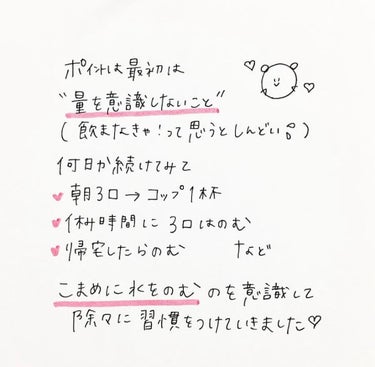 ポイントは最初は
"量を意識しないこと"
(飲まなきゃ!って思うとしんどい)
何日か続けてみて
朝3口→コップ1杯
休み時間に3口はのむ
帰宅したらのむ など
こまめに水をのむのを意識して
除々に習慣をつけていきました♡